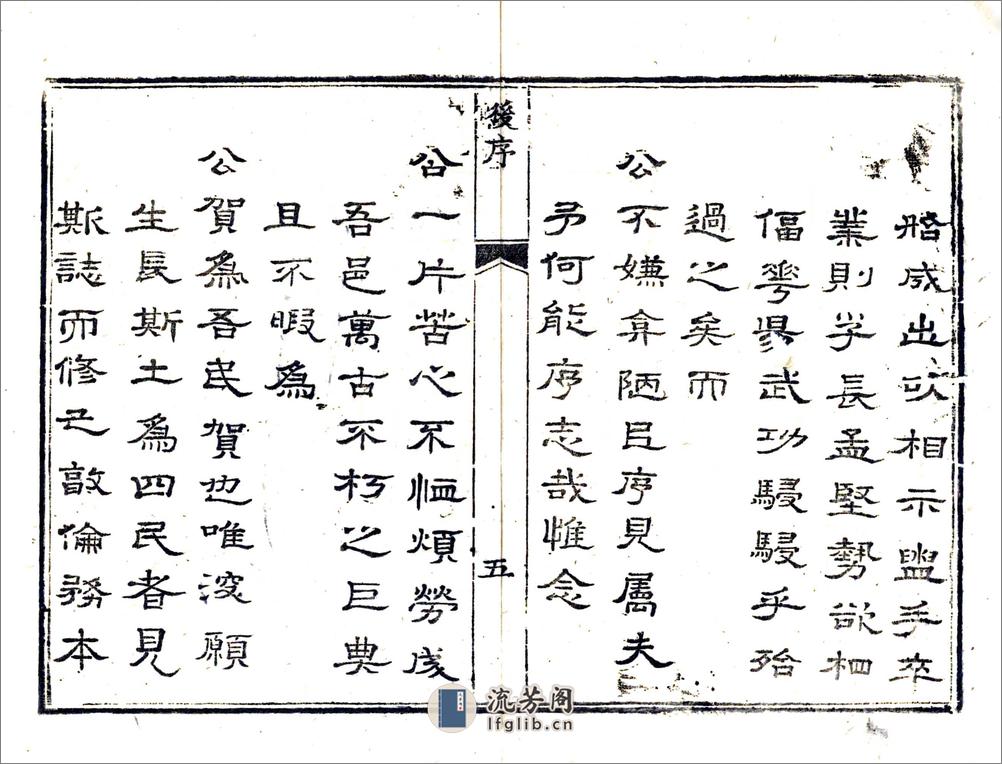 成出以相示盥手卒
業則子長孟堅勢欲相
偪華昜武功駸駸乎殆
過之矣而
公不嫌弇陋㠯序見屬夫
予何能序志哉惟念
後序
五
公一片苦心不恤煩勞成
吾邑萬古不朽之巨典
且不暇爲
公賀爲吾民賀也唯深願
生長斯土爲四民者見
斯誌而修己敦倫務本
流芳阁
lfglib.cn